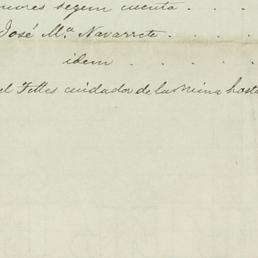 menores segun cuenta . . . .
José Mª Navarrete . . . .
idem . . . .
el Felles cuidador de la Mina hasta